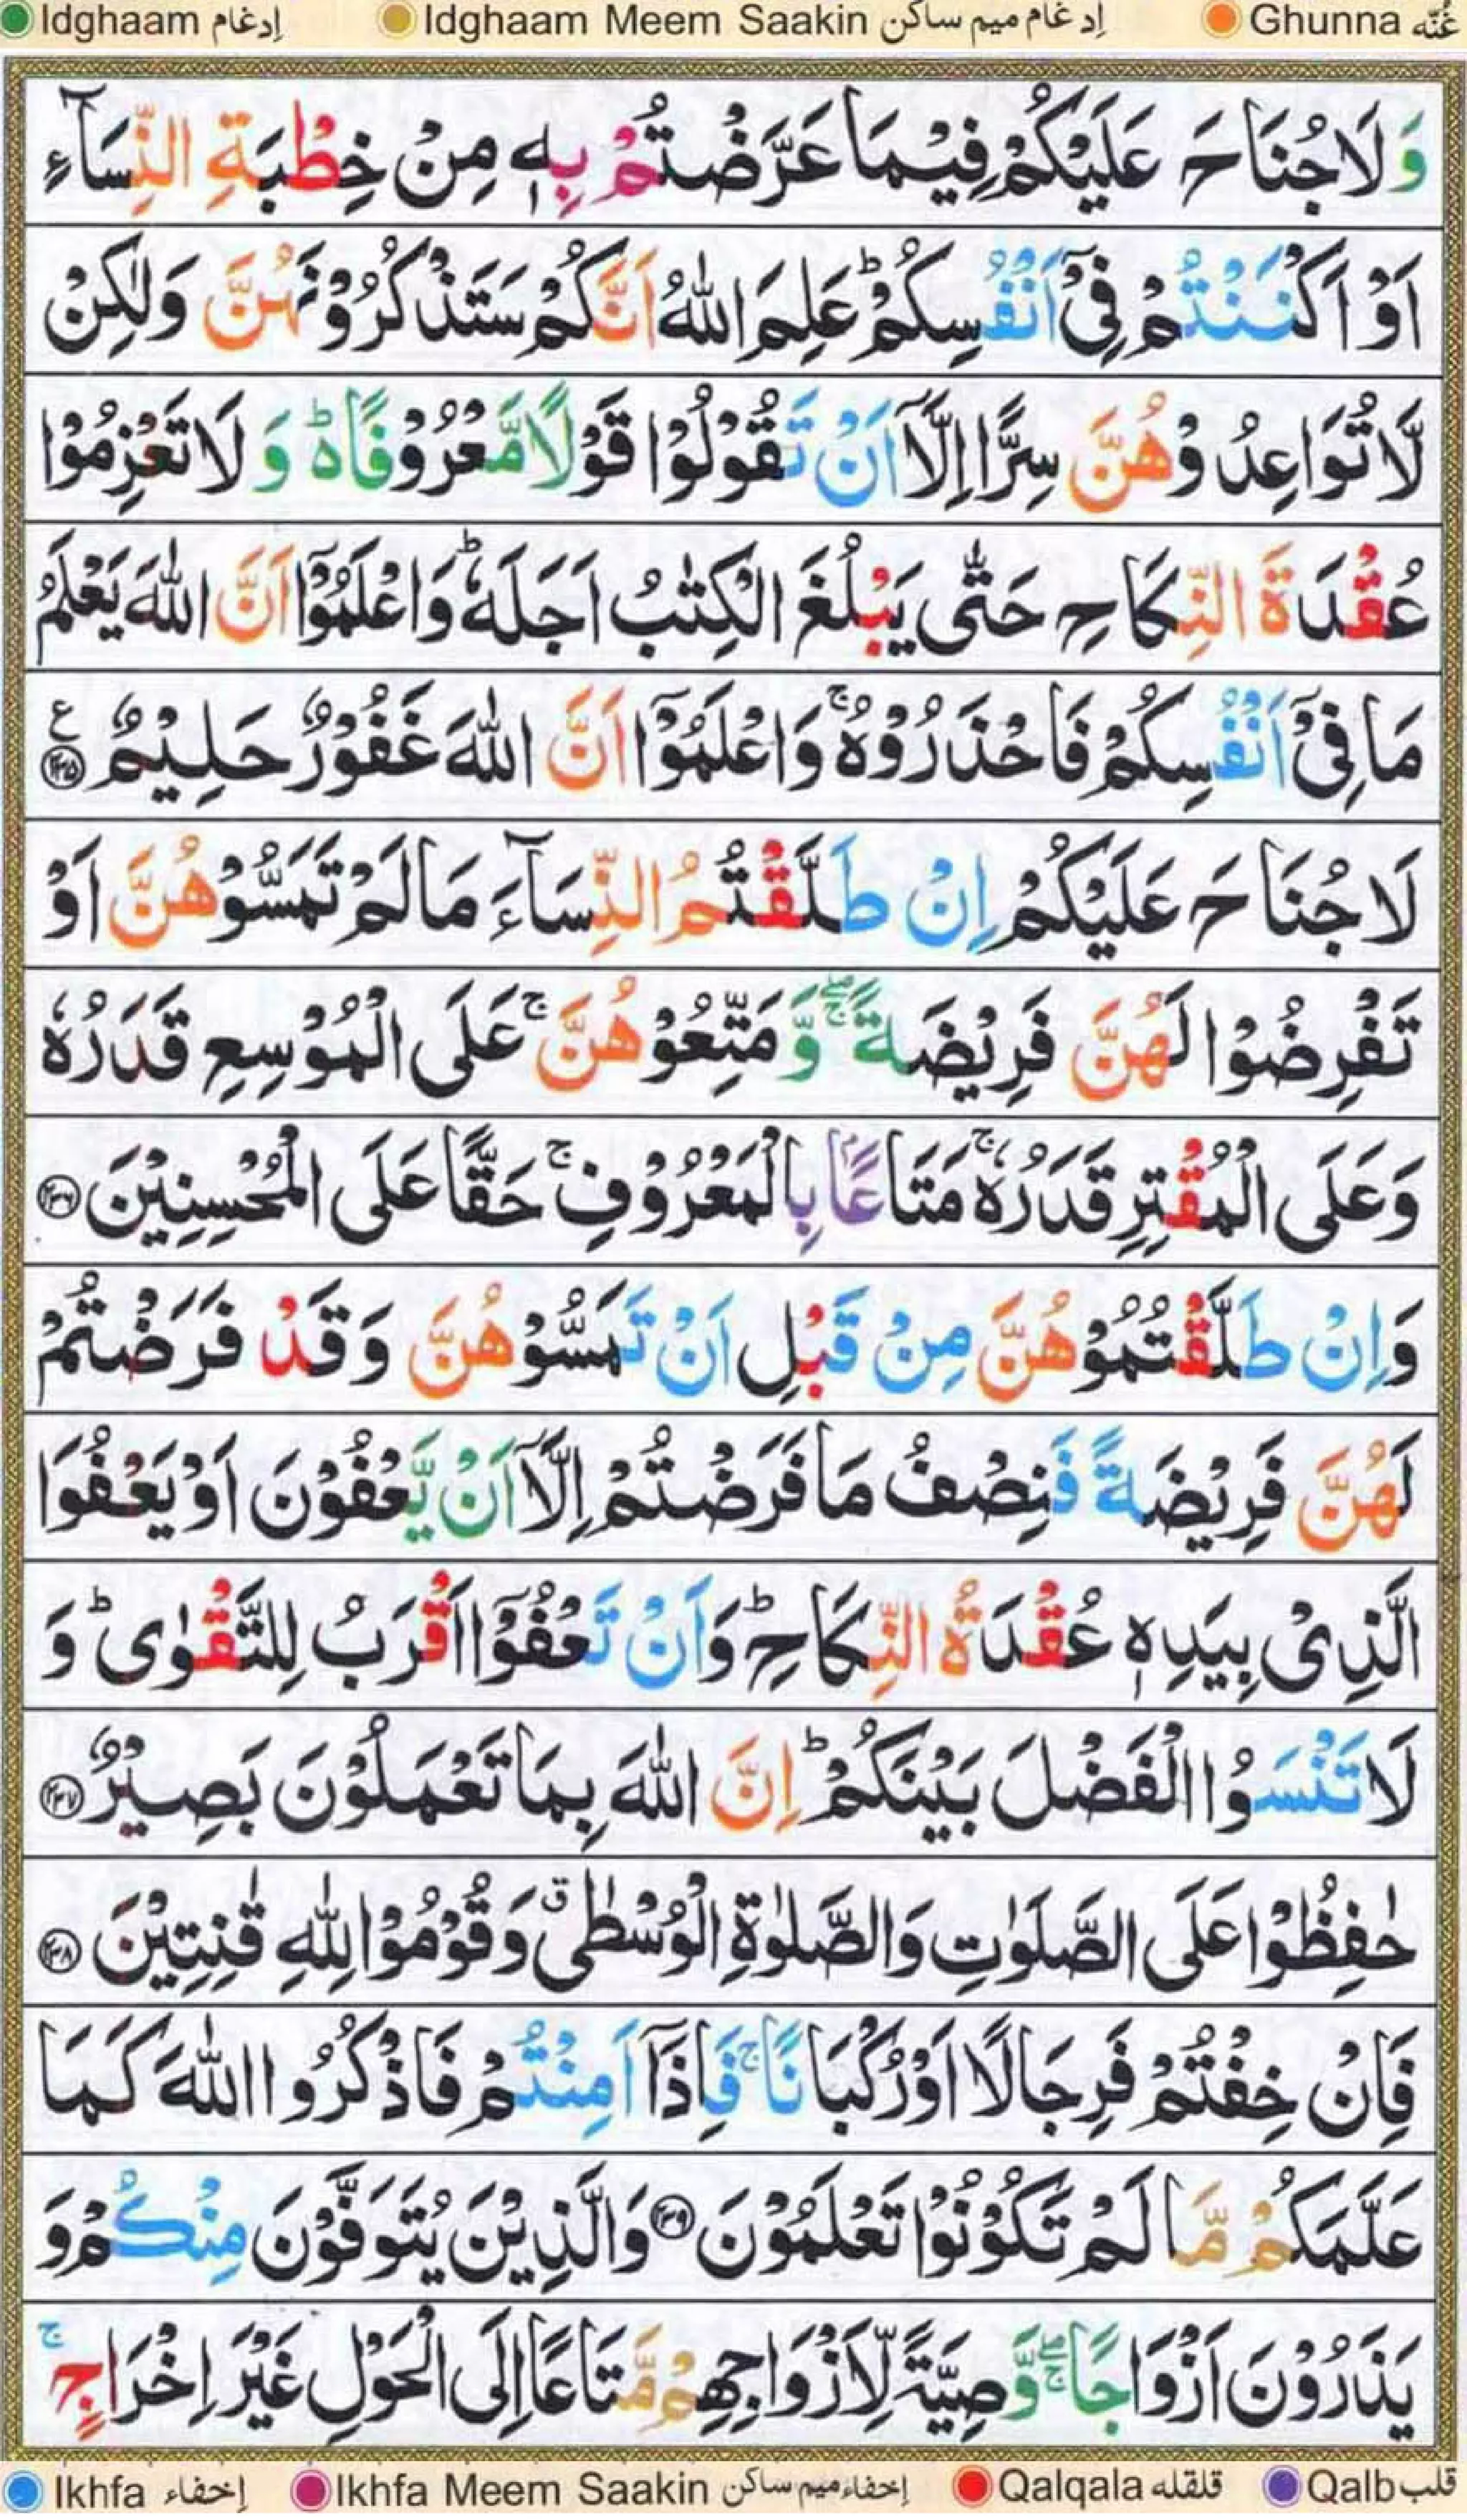 Idghaam إدغام Idghaam Meem Saakin إدغام ميم ساكن Ghunna غُنّه
وَ لَا جُنَاحَ عَلَيْكُمْ فِيْمَا عَرَّضْتُمْ بِهٖ مِنْ خِطْبَةِ النِّسَآءِ
اَوْ اَكْنَنْتُمْ فِیْۤ اَنْفُسِكُمْ ؕ عَلِمَ اللّٰهُ اَنَّكُمْ سَتَذْكُرُوْنَهُنَّ وَلٰكِنْ
لَّا تُوَاعِدُوْهُنَّ سِرًّا اِلَّاۤ اَنْ تَقُوْلُوْا قَوْلًا مَّعْرُوْفًا ۬ؕ وَ لَا تَعْزِمُوْا
عُقْدَةَ النِّكَاحِ حَتّٰى يَبْلُغَ الْكِتٰبُ اَجَلَهٗ ؕ وَاعْلَمُوْۤا اَنَّ اللّٰهَ يَعْلَمُ
مَا فِیْۤ اَنْفُسِكُمْ فَاحْذَرُوْهُ ۚ وَاعْلَمُوْۤا اَنَّ اللّٰهَ غَفُوْرٌ حَلِيْمٌ ۧ ﴿۲۳۵﴾
لَا جُنَاحَ عَلَيْكُمْ اِنْ طَلَّقْتُمُ النِّسَآءَ مَا لَمْ تَمَسُّوْهُنَّ اَوْ
تَفْرِضُوْا لَهُنَّ فَرِيْضَةً ۖۚ وَّ مَتِّعُوْهُنَّ ۚ عَلَى الْمُوْسِعِ قَدَرُهٗ
وَعَلَى الْمُقْتِرِ قَدَرُهٗ ۚ مَتَاعًۢا بِالْمَعْرُوْفِ ۚ حَقًّا عَلَى الْمُحْسِنِيْنَ ﴿۲۳۶﴾
وَاِنْ طَلَّقْتُمُوْهُنَّ مِنْ قَبْلِ اَنْ تَمَسُّوْهُنَّ وَقَدْ فَرَضْتُمْ
لَهُنَّ فَرِيْضَةً فَنِصْفُ مَا فَرَضْتُمْ اِلَّاۤ اَنْ يَّعْفُوْنَ اَوْ يَعْفُوَا
الَّذِیْ بِيَدِهٖ عُقْدَةُ النِّكَاحِ ؕ وَاَنْ تَعْفُوْۤا اَقْرَبُ لِلتَّقْوٰى ؕ وَ
لَا تَنْسَوُا الْفَضْلَ بَيْنَكُمْ ؕ اِنَّ اللّٰهَ بِمَا تَعْمَلُوْنَ بَصِيْرٌ ﴿۲۳۷﴾
حٰفِظُوْا عَلَى الصَّلَوٰتِ وَالصَّلٰوةِ الْوُسْطٰى ۗ وَقُوْمُوْا لِلّٰهِ قٰنِتِيْنَ ﴿۲۳۸﴾
فَاِنْ خِفْتُمْ فَرِجَالًا اَوْ رُكْبَانًا ۚ فَاِذَاۤ اَمِنْتُمْ فَاذْكُرُوا اللّٰهَ كَمَا
عَلَّمَكُمْ مَّا لَمْ تَكُوْنُوْا تَعْلَمُوْنَ ﴿۲۳۹﴾ وَالَّذِيْنَ يُتَوَفَّوْنَ مِنْكُمْ وَ
يَذَرُوْنَ اَزْوَاجًا ۖۚ وَّصِيَّةً لِّاَزْوَاجِهِمْ مَّتَاعًا اِلَى الْحَوْلِ غَيْرَ اِخْرَاجٍ ۚ
Ikhfa إخفاء Ikhfa Meem Saakin إخفاء ميم ساكن Qalqala قلقله Qalb قلب